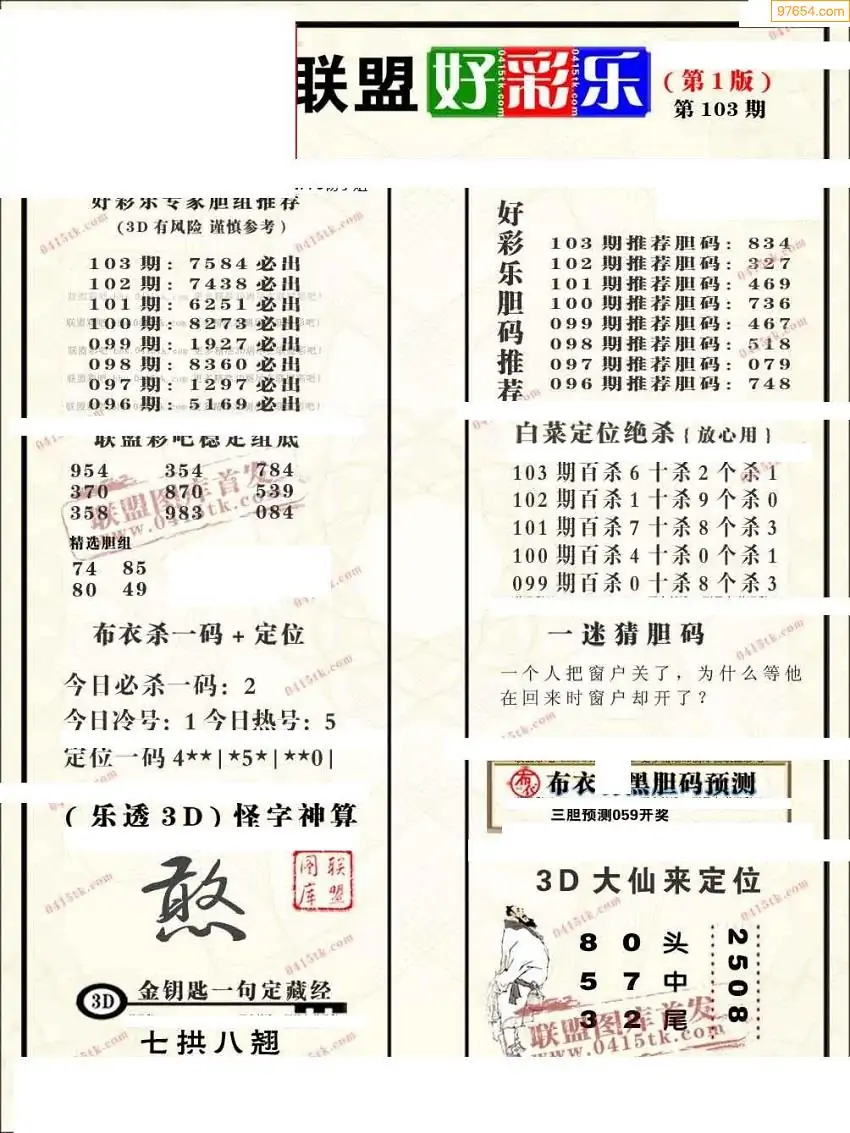 97654.com
联盟好彩乐(第1版)
第103期
好彩乐专家胆组推荐
(3D有风险 谨慎参考)
103期: 7584必出
102期: 7438必出
101期: 6251必出
100期: 8273必出
099期: 1927必出
098期: 8360必出
097期: 1297必出
096期: 5169必出
联盟彩吧稳定组底
954 354 784
370 870 539
358 983 084
精选胆组
74 85
80 49
布衣杀一码+定位
今日必杀一码: 2
今日冷号: 1今日热号: 5
定位一码4**|*5*|**0|
(乐透3D)怪字神算
憨
联盟图库
3D 金钥匙一句定藏经
七拱八翘
好彩乐胆码推荐
103期推荐胆码: 834
102期推荐胆码: 327
101期推荐胆码: 469
100期推荐胆码: 736
099期推荐胆码: 467
098期推荐胆码: 518
097期推荐胆码: 079
096期推荐胆码: 748
白菜定位绝杀{放心用}
103期百杀6十杀2个杀1
102期百杀1十杀9个杀0
101期百杀7十杀8个杀3
100期百杀4十杀0个杀1
099期百杀0十杀8个杀3
一迷猜胆码
一个人把窗户关了，为什么等他
在回来时窗户却开了？
布衣 布衣 黑胆码预测
三胆预测059开奖
3D大仙来定位
8 0 头
5 7 中
3 2 尾
2508
联盟图库首发
www.0415tk.com
联盟图库首发
www.0415tk.com
0415tk.com